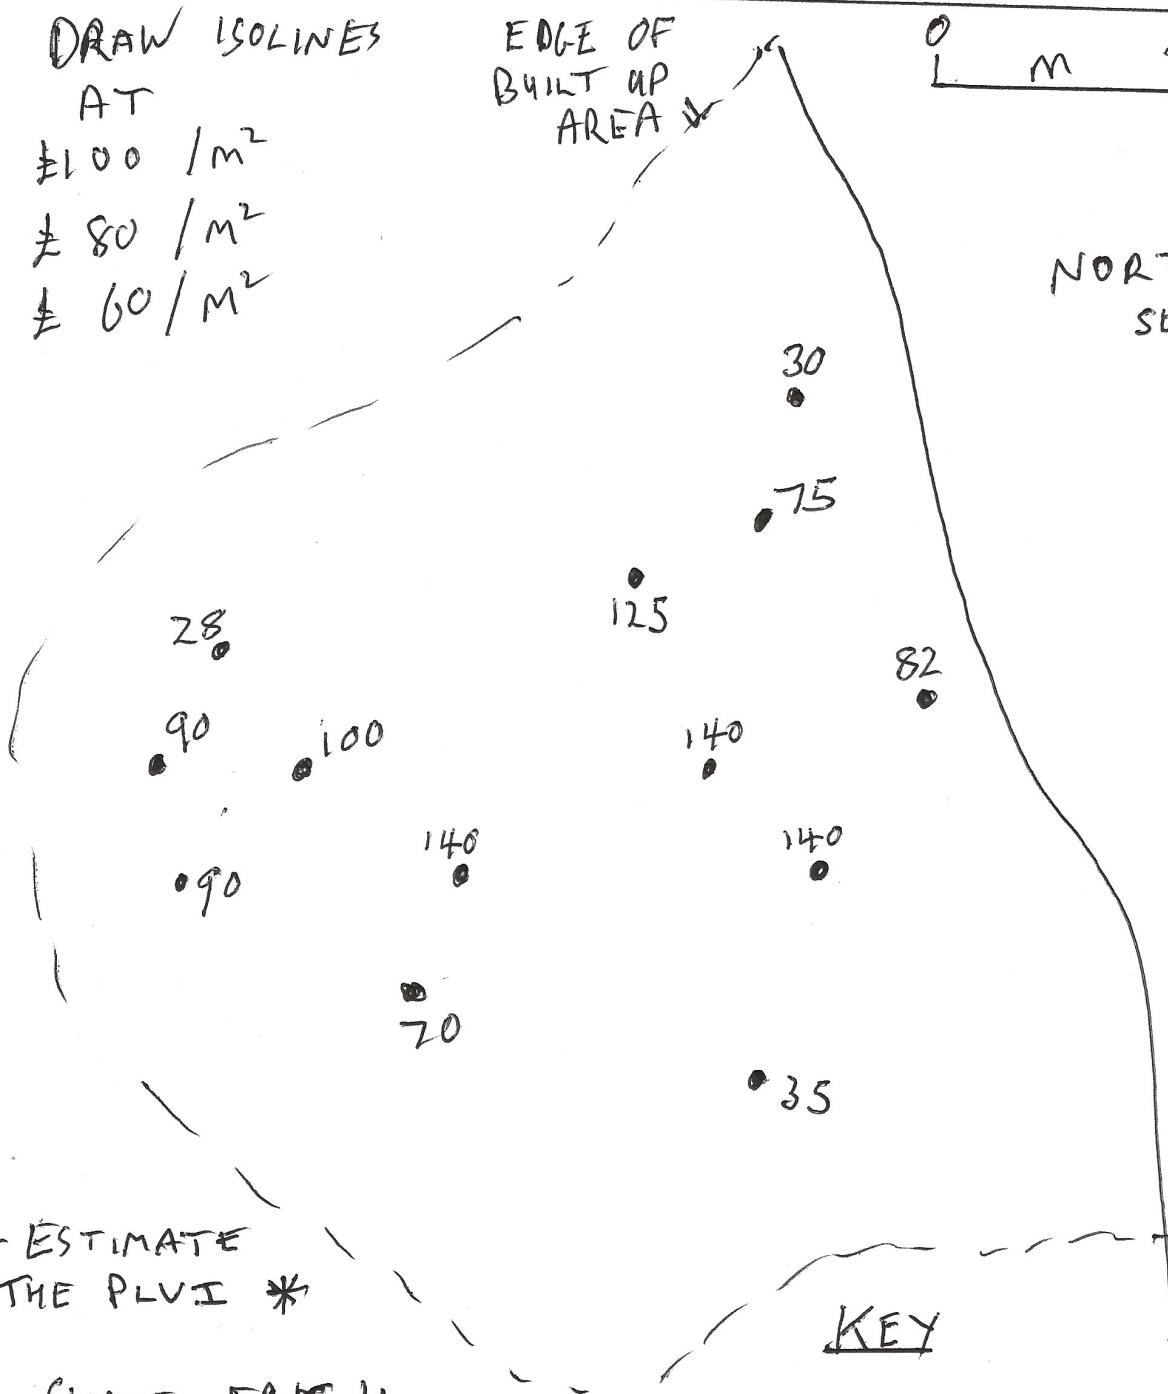 DRAW ISOLINES
AT
£100 /m²
£ 80 /m²
£ 60/m²
EDGE OF
BUILT UP
AREA
0
m
30
75
125
28
82
90
100
140
140
140
90
70
35
- ESTIMATE
THE PLVI *
KEY